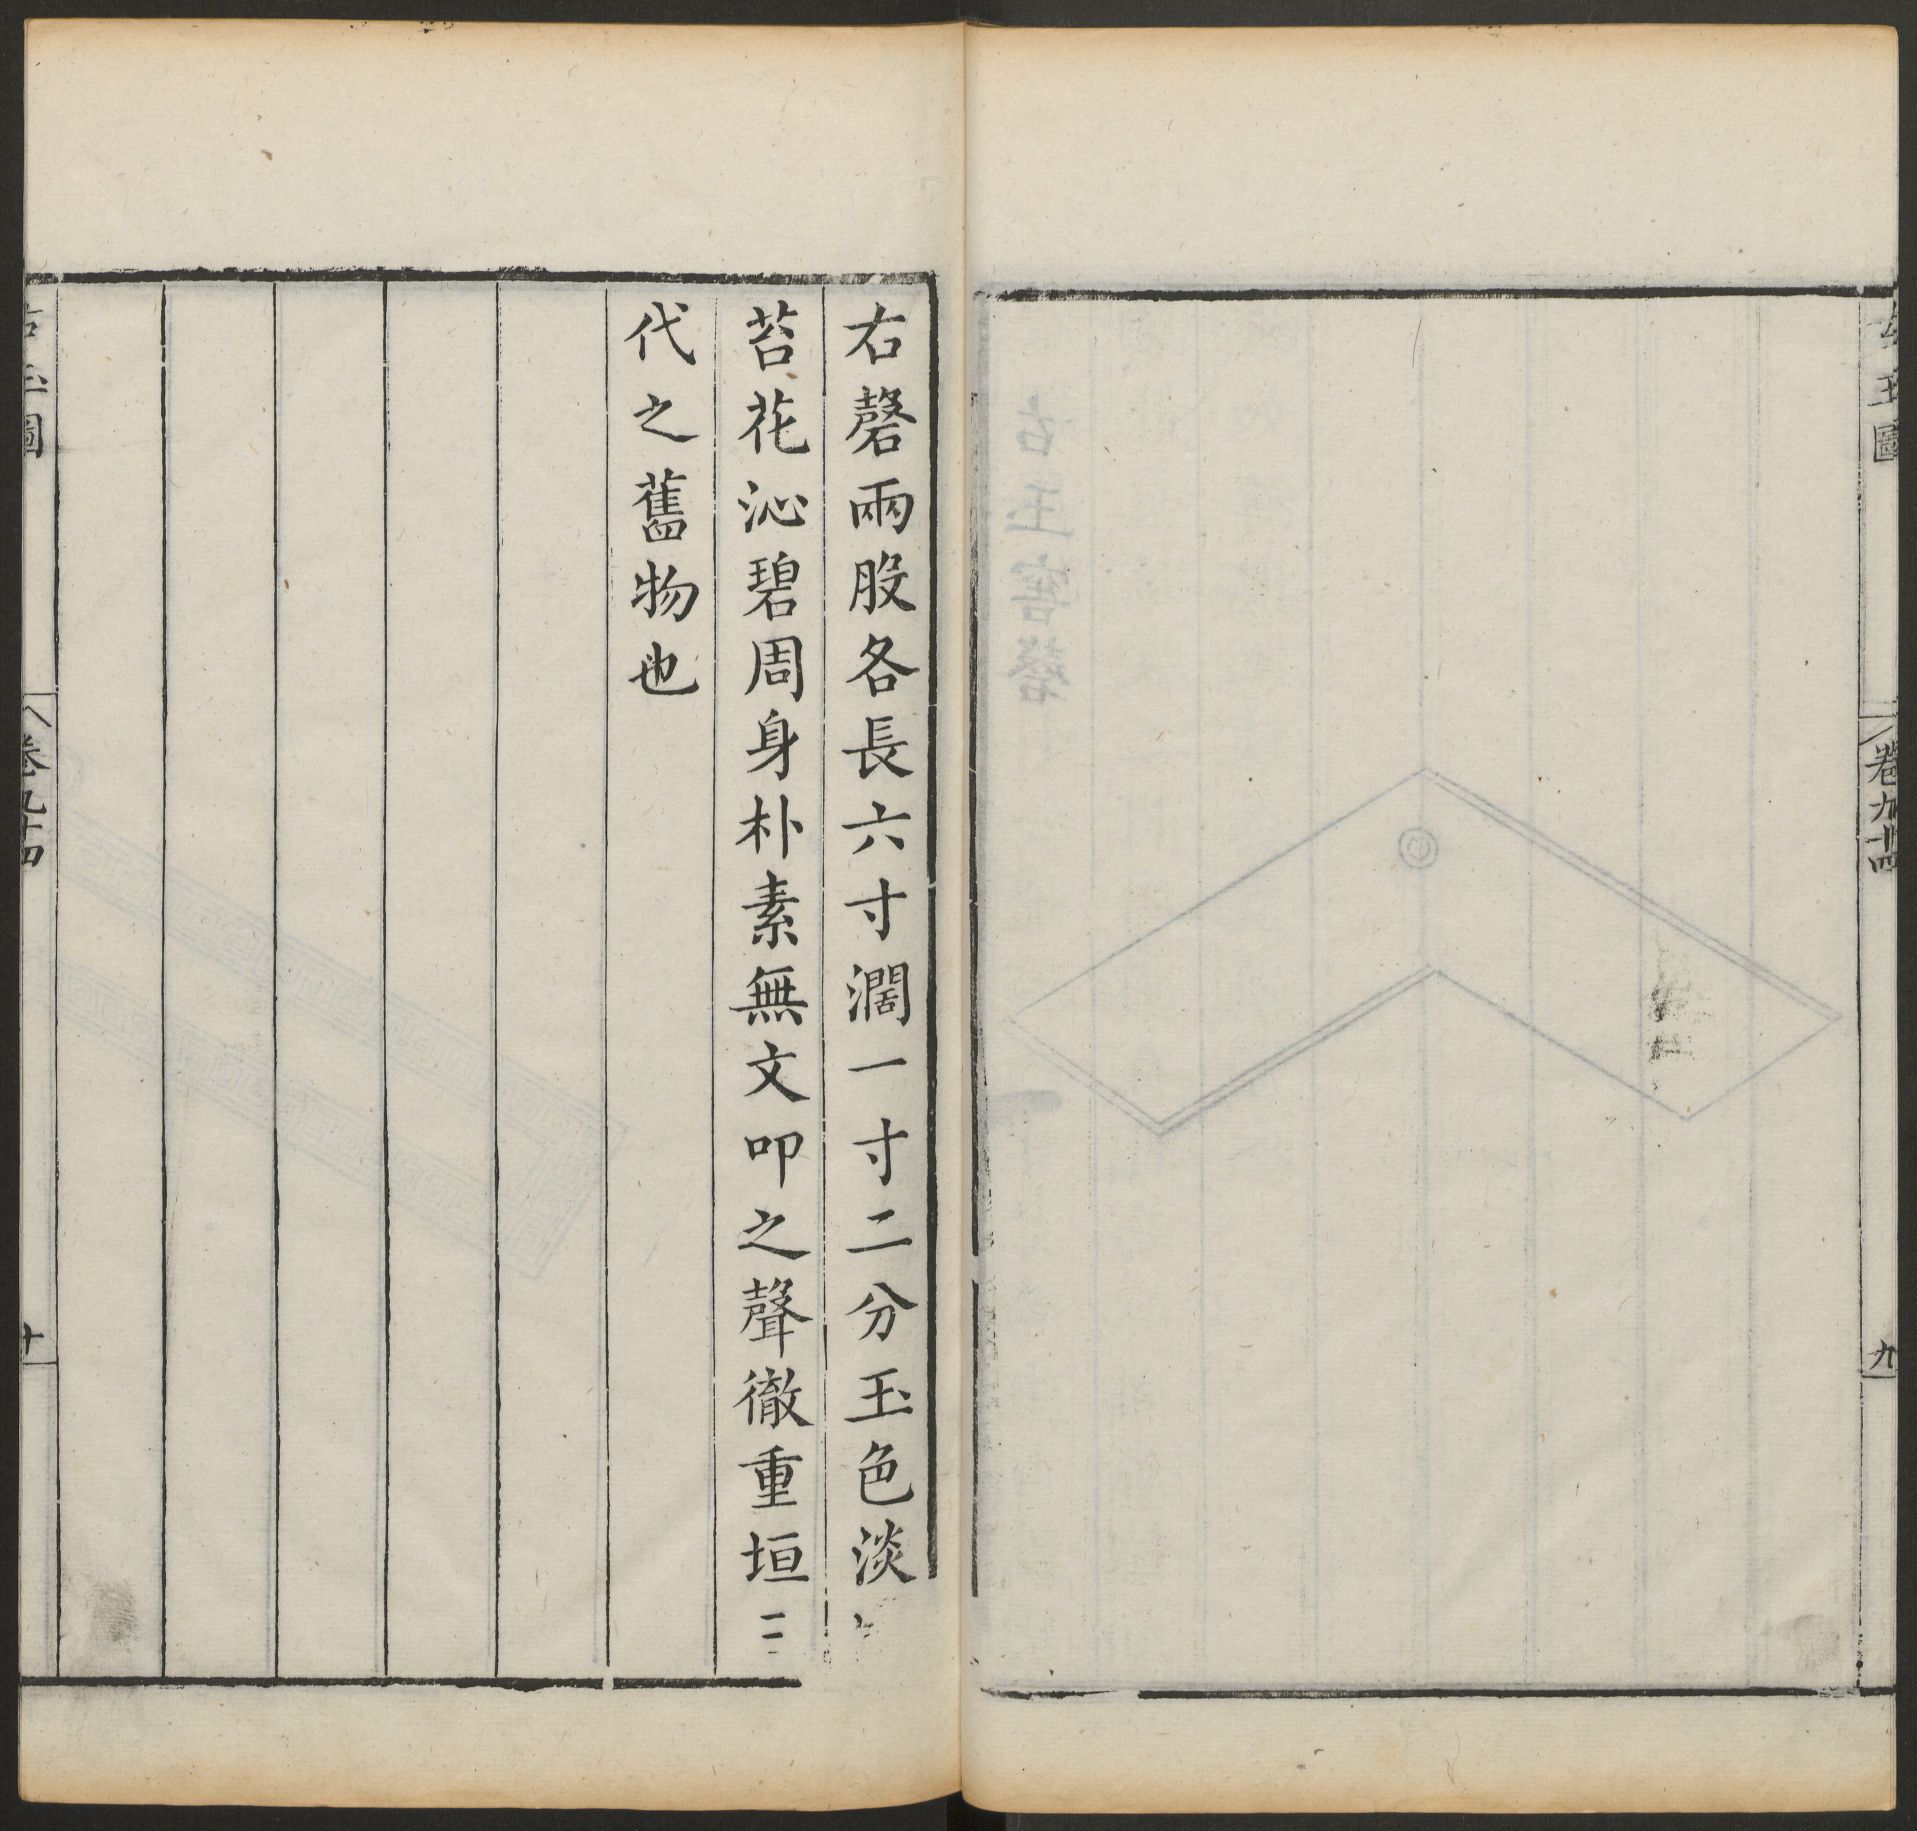 古玉圖
卷九十四
九
右磬兩股各長六寸濶一寸二分玉色淡
苔花沁碧周身朴素無文叩之聲徹重垣三
代之舊物也
古玉圖
卷九十四
十